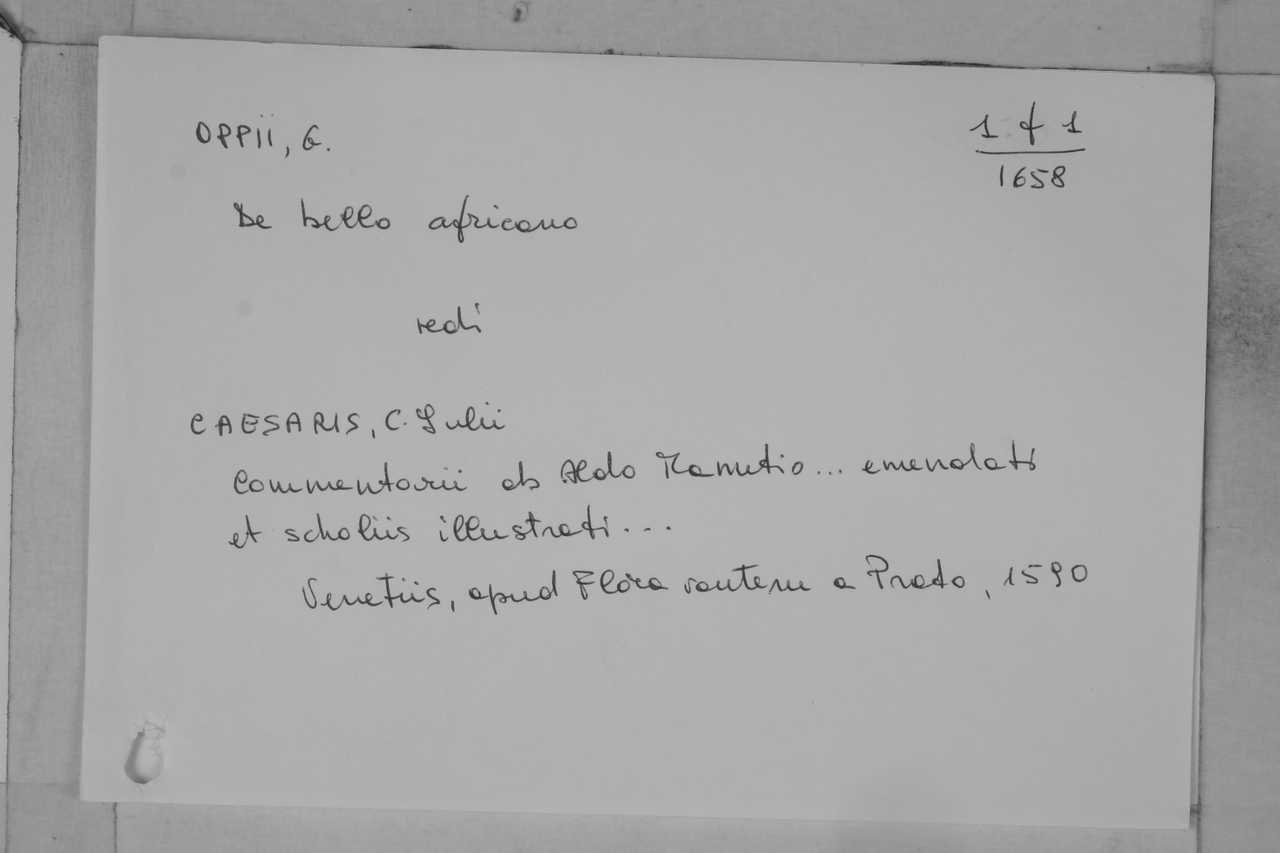 OPPII, G.
1 f 1
1658
De bello africano
vedi
CAESARIS, C. Julii
Commentarii ab Aldo Manutio... emendati
et scholiis illustrati...
Venetiis, apud Floravantem a Prato, 1590